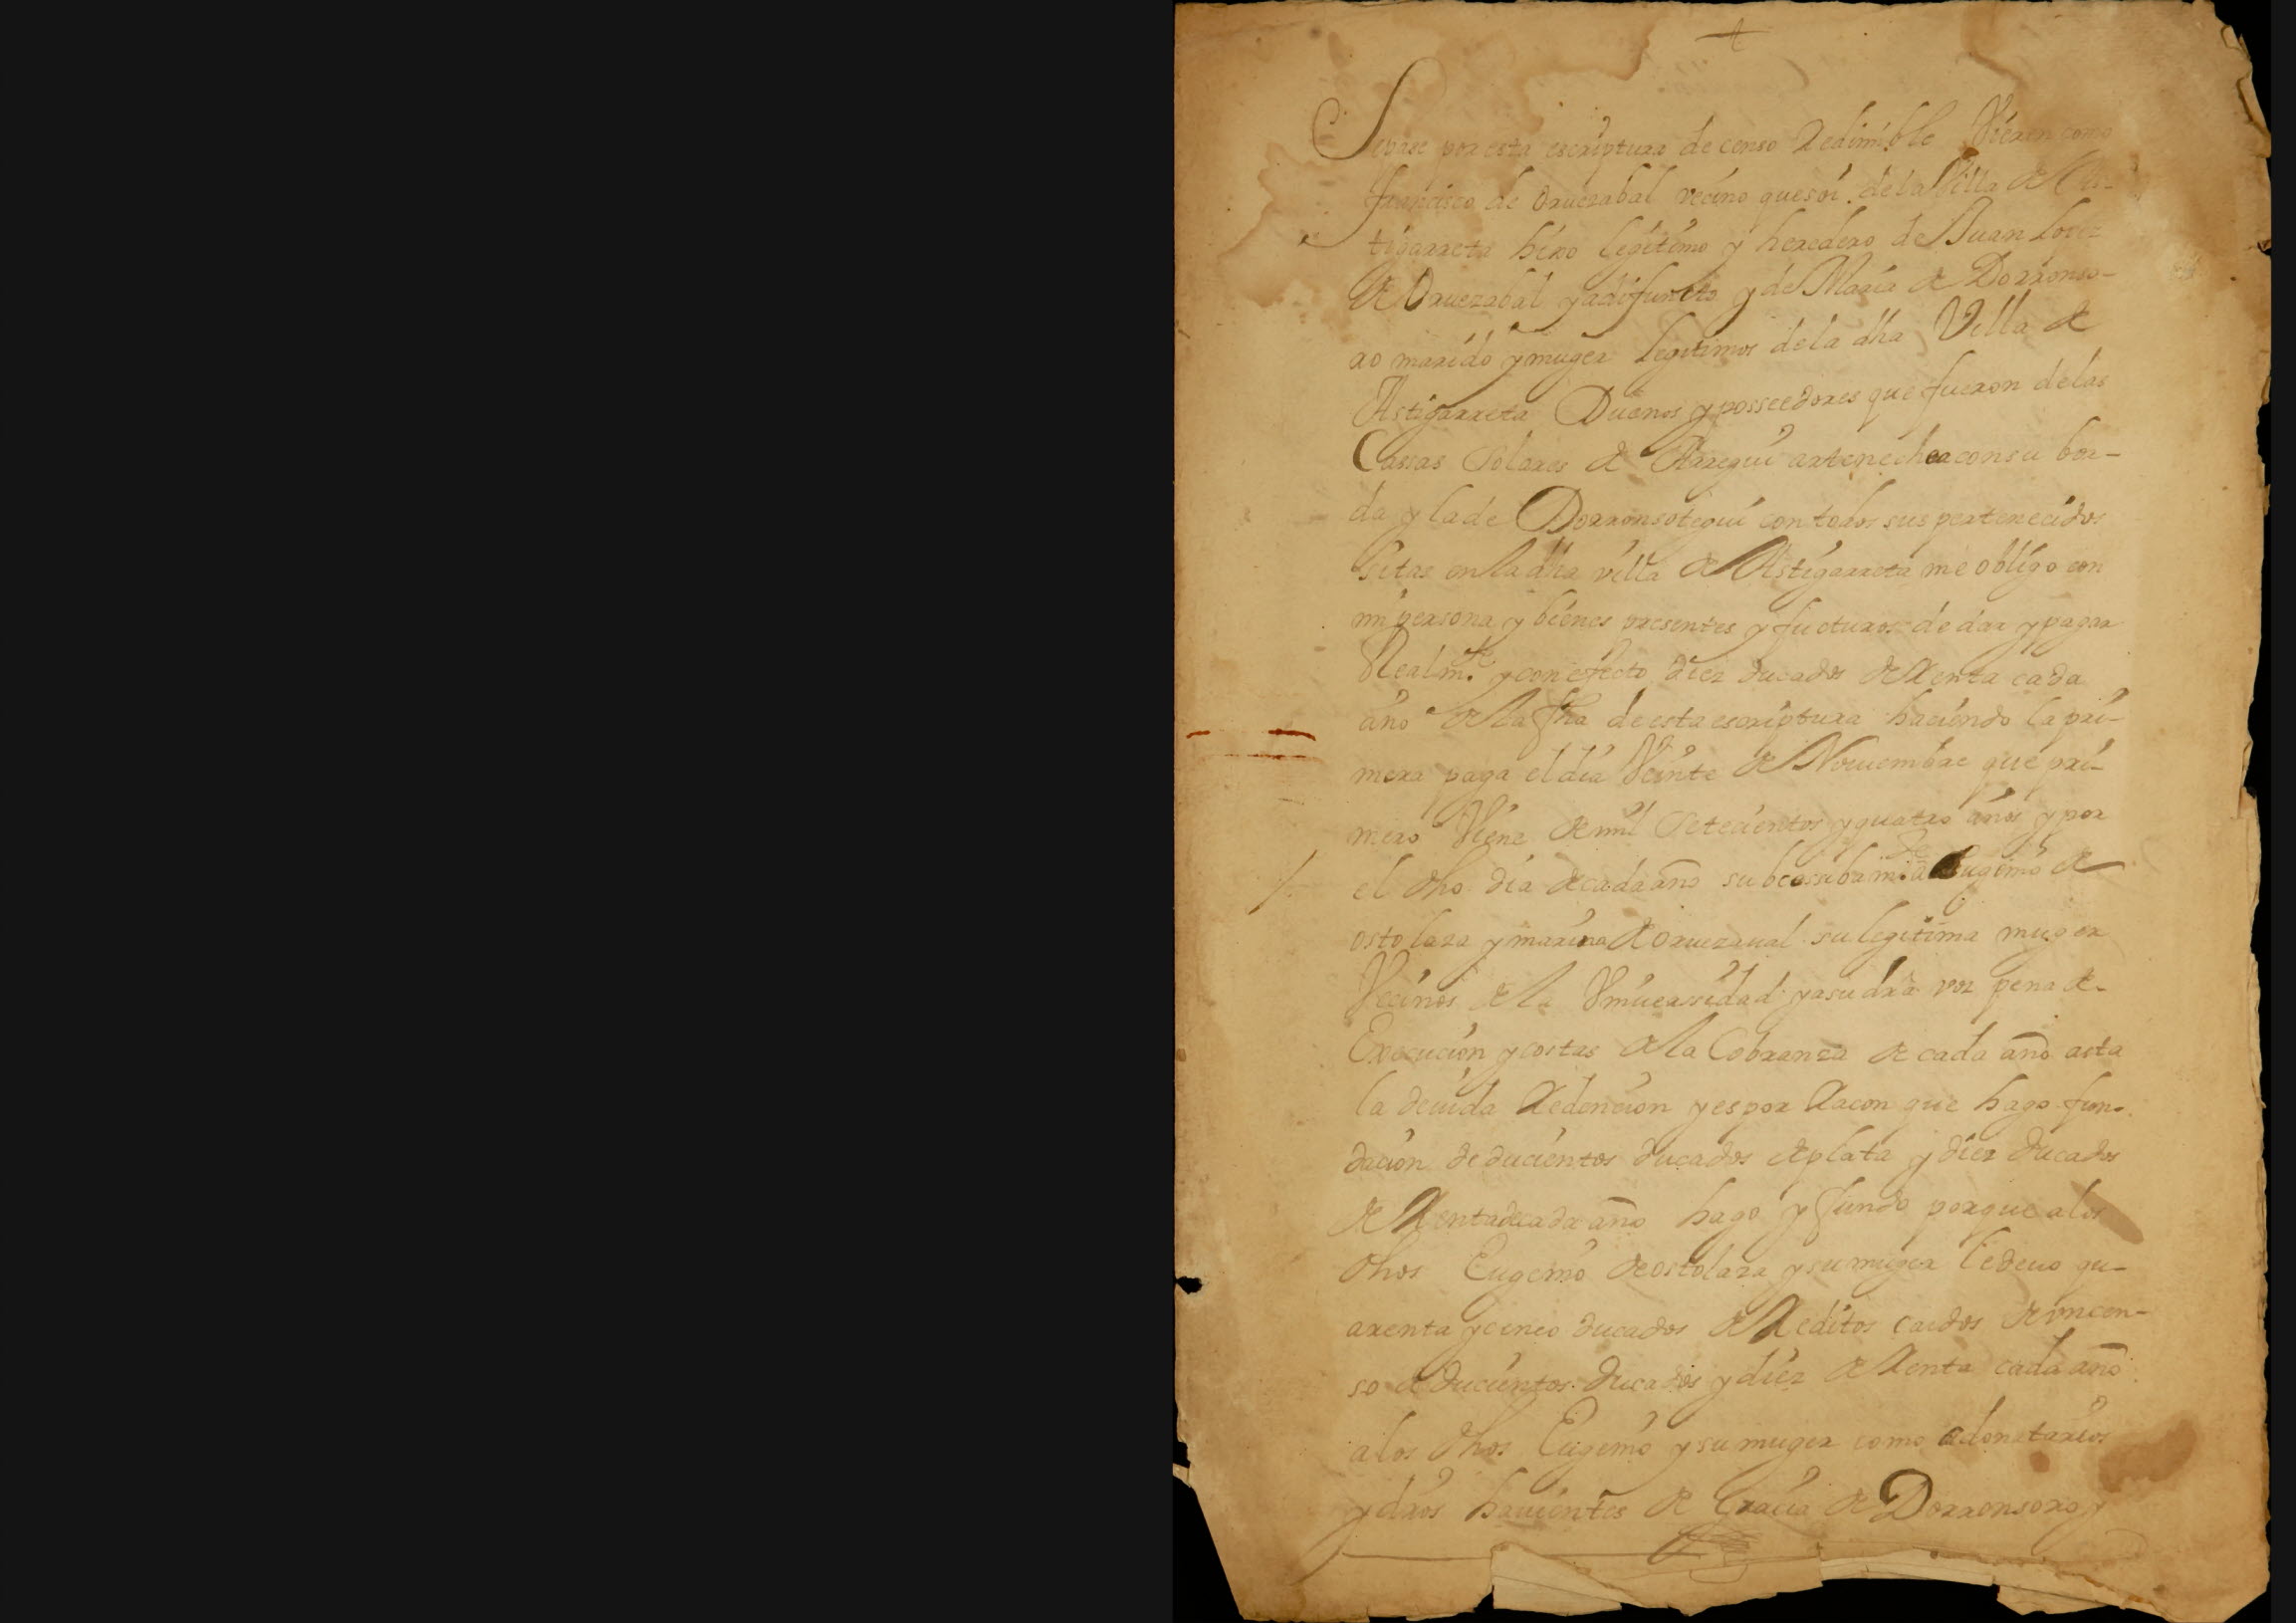 Sepase por esta escriptura de censo Redimible Vieren como
francisco de oruezabal vecino que soi de la Villa de As-
tigarreta hixo legitimo y heredero de Juan Lopez
de Oruezabal ya difuncto y de Maria de Dorronso-
ro marido y muger legitimos de la dha Villa de
Astigarreta Duenos y posseedores que fueron de las
Cassas Solares de Arregui artenechea con su bor-
da y la de Dorronsotegui con todos sus pertenecidos
sitas en la dha villa de Astigarreta me obligo con
mi persona y bienes presentes y fucturos de dar y pagar
Realm.te y con efecto diez ducados de Renta cada
año de la fha de esta escriptura haciendo la pri-
mera paga el dia Veinte de Nouiembre que pri-
mero Viene de mil Setecientos y quatro años y por
el dho dia de cada año subcessibam.te a Eugenio de
ostolaza y marina de oruezaual su legitima muger
Vecinos de la Vniuersidad y a su dra por pena de
Execucion y costas de la Cobranza de cada año asta
la deuida Redencion y es por Racon que hago fun-
dacion de ducientos ducados de plata y diez ducados
de Renta de cada año hago y fundo porque a los
dhos Eugenio de ostolaza y su muger le deuo qu-
arenta y cinco ducados de Reditos caidos de vn cen-
so de ducientos ducados y diez de Renta cada año
a los dhos Eugenio y su muger como a donatarios
y dros hauientes de Gracia de Dorronsoro y